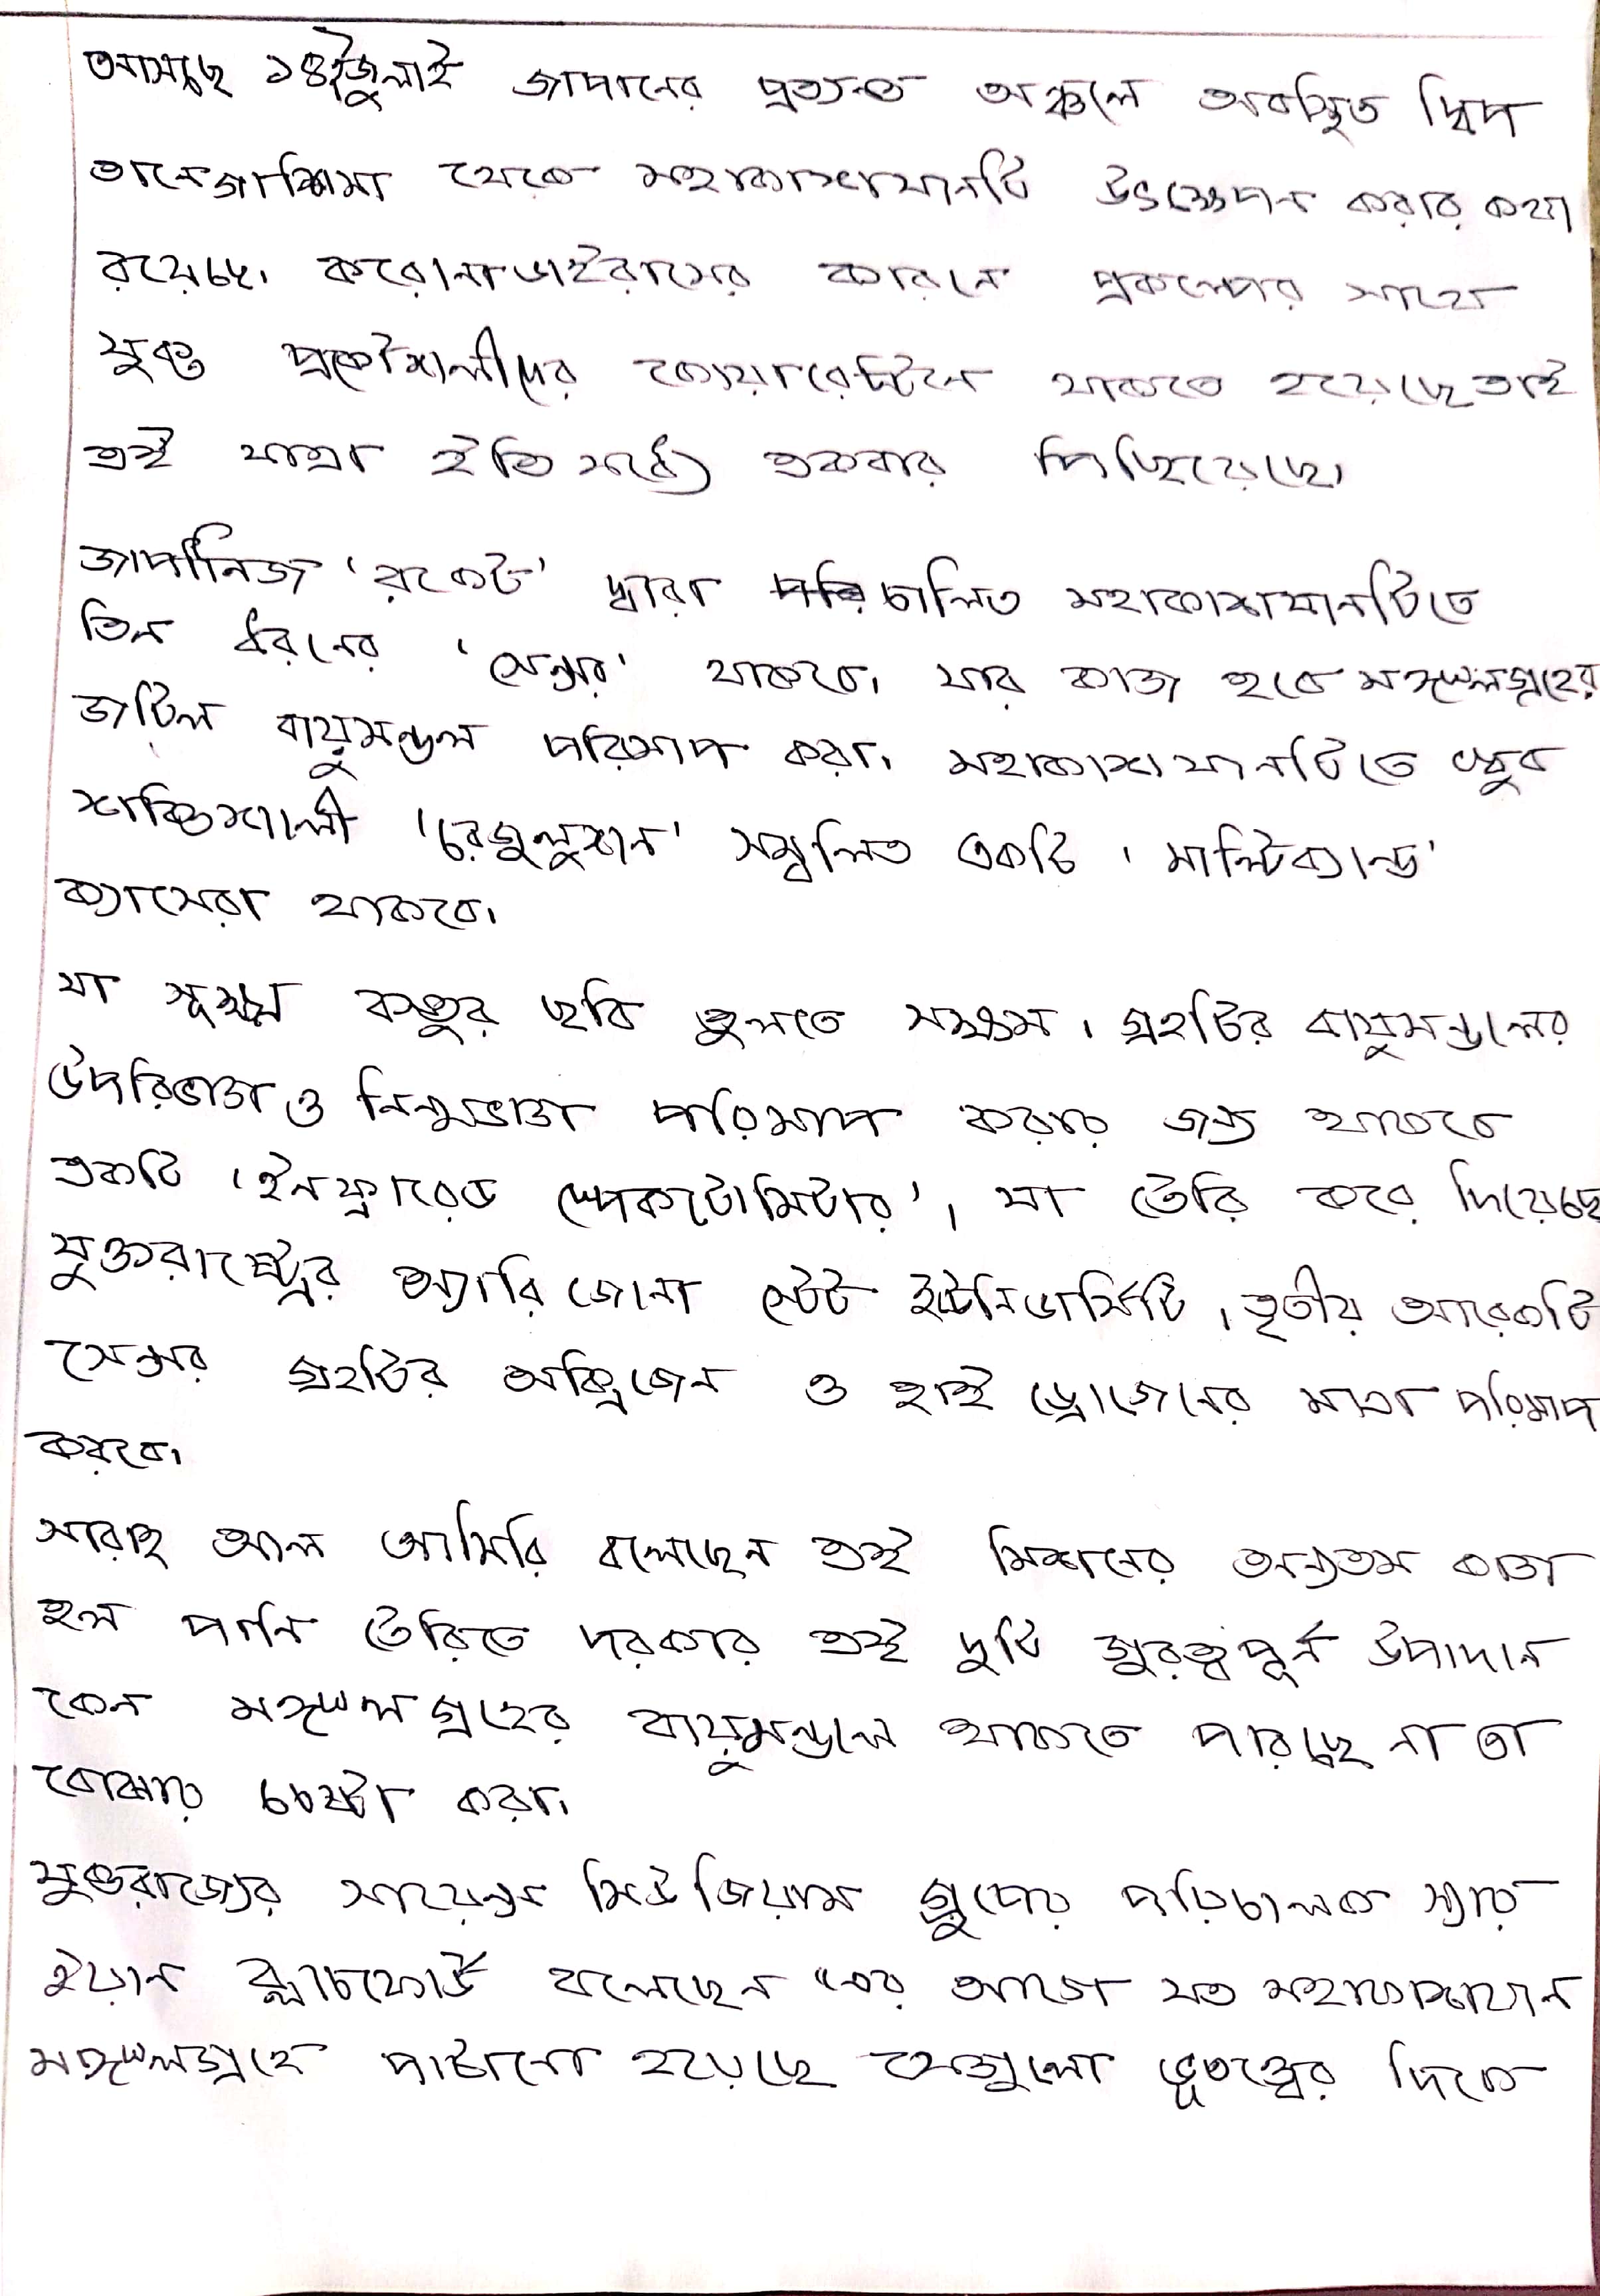 আসছে ১৪ই জুলাই জাপানের প্রত্যন্ত অঞ্চলে অবস্থিত দ্বিপ
তানেগাশিমা থেকে মহাকাশযানটি উৎক্ষেপন করার কথা
রয়েছে। করোনাভাইরাসের কারনে প্রকল্পের সাথে
যুক্ত প্রকৌশলীদের কোয়ারেন্টিনে থাকতে হয়েছে তাই
এই যাত্রা ইতি মধ্যে একবার পিছিয়েছে।
জাপানিজ 'রকেট' দ্বারা পরিচালিত মহাকাশযানটিতে
তিন ধরনের 'সেন্সর' থাকবে। যার কাজ হবে মঙ্গলগ্রহের
জটিল বায়ুমন্ডল পরিমাপ করা। মহাকাশযানটিতে খুব
শক্তিশালী 'রেজুলুশন' সম্বলিত একটি 'মাল্টিব্যান্ড'
ক্যামেরা থাকবে।
যা সূক্ষ্ম বস্তুর ছবি তুলতে সক্ষম। গ্রহটির বায়ুমন্ডলের
উপরিভাগ ও নিন্মভাগ পরিমাপ করার জন্য থাকবে
একটি 'ইনফ্রারেড স্পেকটোমিটার', যা তৈরি করে দিয়েছে
যুক্তরাষ্ট্রের অ্যারিজোনা স্টেট ইউনিভার্সিটি। তৃতীয় আরেকটি
সেন্সর গ্রহটির অক্সিজেন ও হাইড্রোজেনের মাত্রা পরিমাপ
করবে।
সারাহ আল আমিরি বলেছেন এই মিশনের অন্যতম কাজ
হল পানি তৈরিতে দরকার এই দুটি গুরত্বপূর্ন উপাদান
কেন মঙ্গলগ্রহের বায়ুমন্ডলে থাকতে পারছে না তা
বোঝার চেষ্টা করা।
যুক্তরাজ্যের সায়েন্স মিউজিয়াম গ্রুপের পরিচালক স্যার
ইয়ান ব্ল্যাচফোর্ড বলেছেন "এর আগে যত মহাকাশযান
মঙ্গলগ্রহে পাঠানো হয়েছে সেগুলো ভূতত্ত্বের দিকে